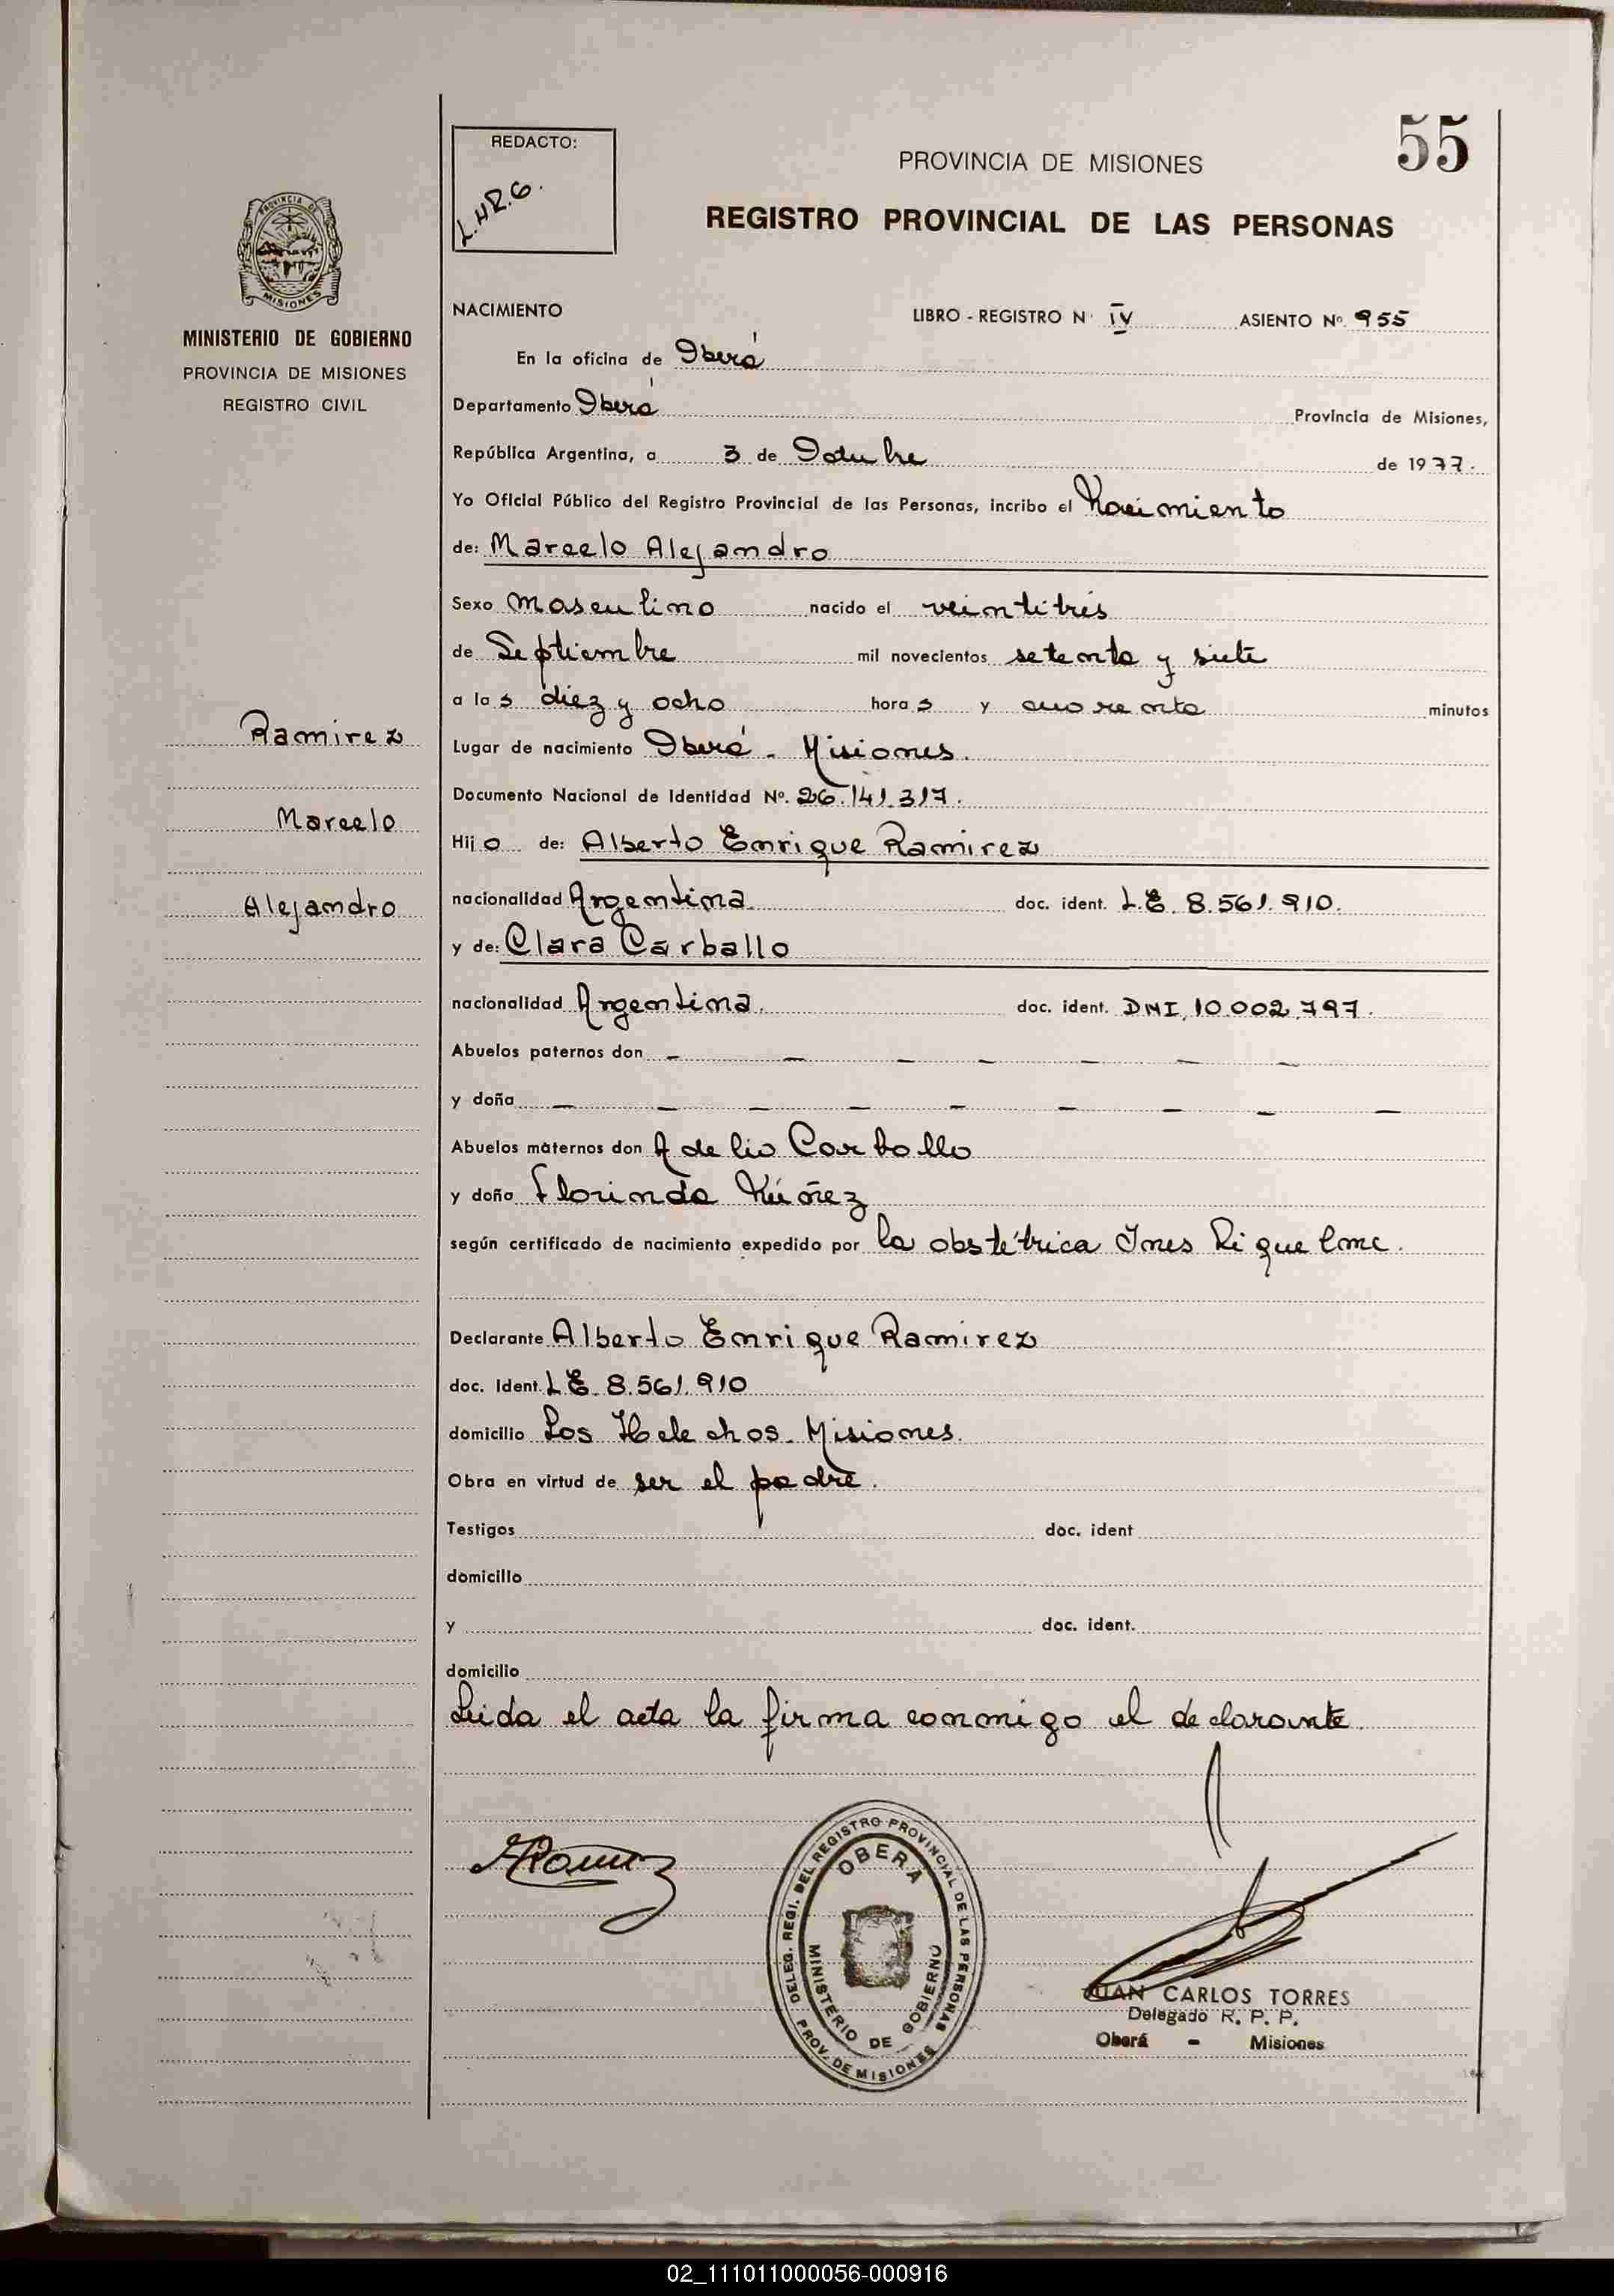 55
REDACTO:
L.H.R.G.
PROVINCIA DE MISIONES
REGISTRO PROVINCIAL DE LAS PERSONAS
PROVINCIA DE
MISIONES
MINISTERIO DE GOBIERNO
PROVINCIA DE MISIONES
REGISTRO CIVIL
Ramirez
Marcelo
Alejandro
NACIMIENTO LIBRO - REGISTRO N° IV ASIENTO Nº. 955
En la oficina de Oberá
Departamento Oberá Provincia de Misiones,
República Argentina, a 3 de Octubre de 1977.
Yo Oficial Público del Registro Provincial de las Personas, incribo el Nacimiento
de: Marcelo Alejandro
Sexo Masculino nacido el veintitrés
de Septiembre mil novecientos setenta y siete
a las diez y ocho horas y cuarenta minutos
Lugar de nacimiento Oberá - Misiones.
Documento Nacional de Identidad Nº. 26.141.317.
Hijo de: Alberto Enrique Ramirez
nacionalidad Argentina. doc. ident. L.E. 8.561.910.
y de: Clara Carballo
nacionalidad Argentina. doc. ident. DNI. 10.002.797.
Abuelos paternos don — — — — — — —
y doña — — — — — — — — —
Abuelos maternos don Adelio Carballo
y doña Florinda Núñez
según certificado de nacimiento expedido por la obstétrica Ines Riquelme.
Declarante Alberto Enrique Ramirez
doc. Ident. L.E. 8.561.910
domicilio Los Helechos - Misiones.
Obra en virtud de ser el padre.
Testigos doc. ident
domicilio
y doc. ident.
domicilio
Leida el acta la firma conmigo el declarante.
DELEG. REGI. DEL REGISTRO PROVINCIAL DE LAS PERSONAS
OBERA
MINISTERIO DE GOBIERNO
PROV. DE MISIONES
JUAN CARLOS TORRES
Delegado R. P. P.
Oberá - Misiones
02_111011000056-000916